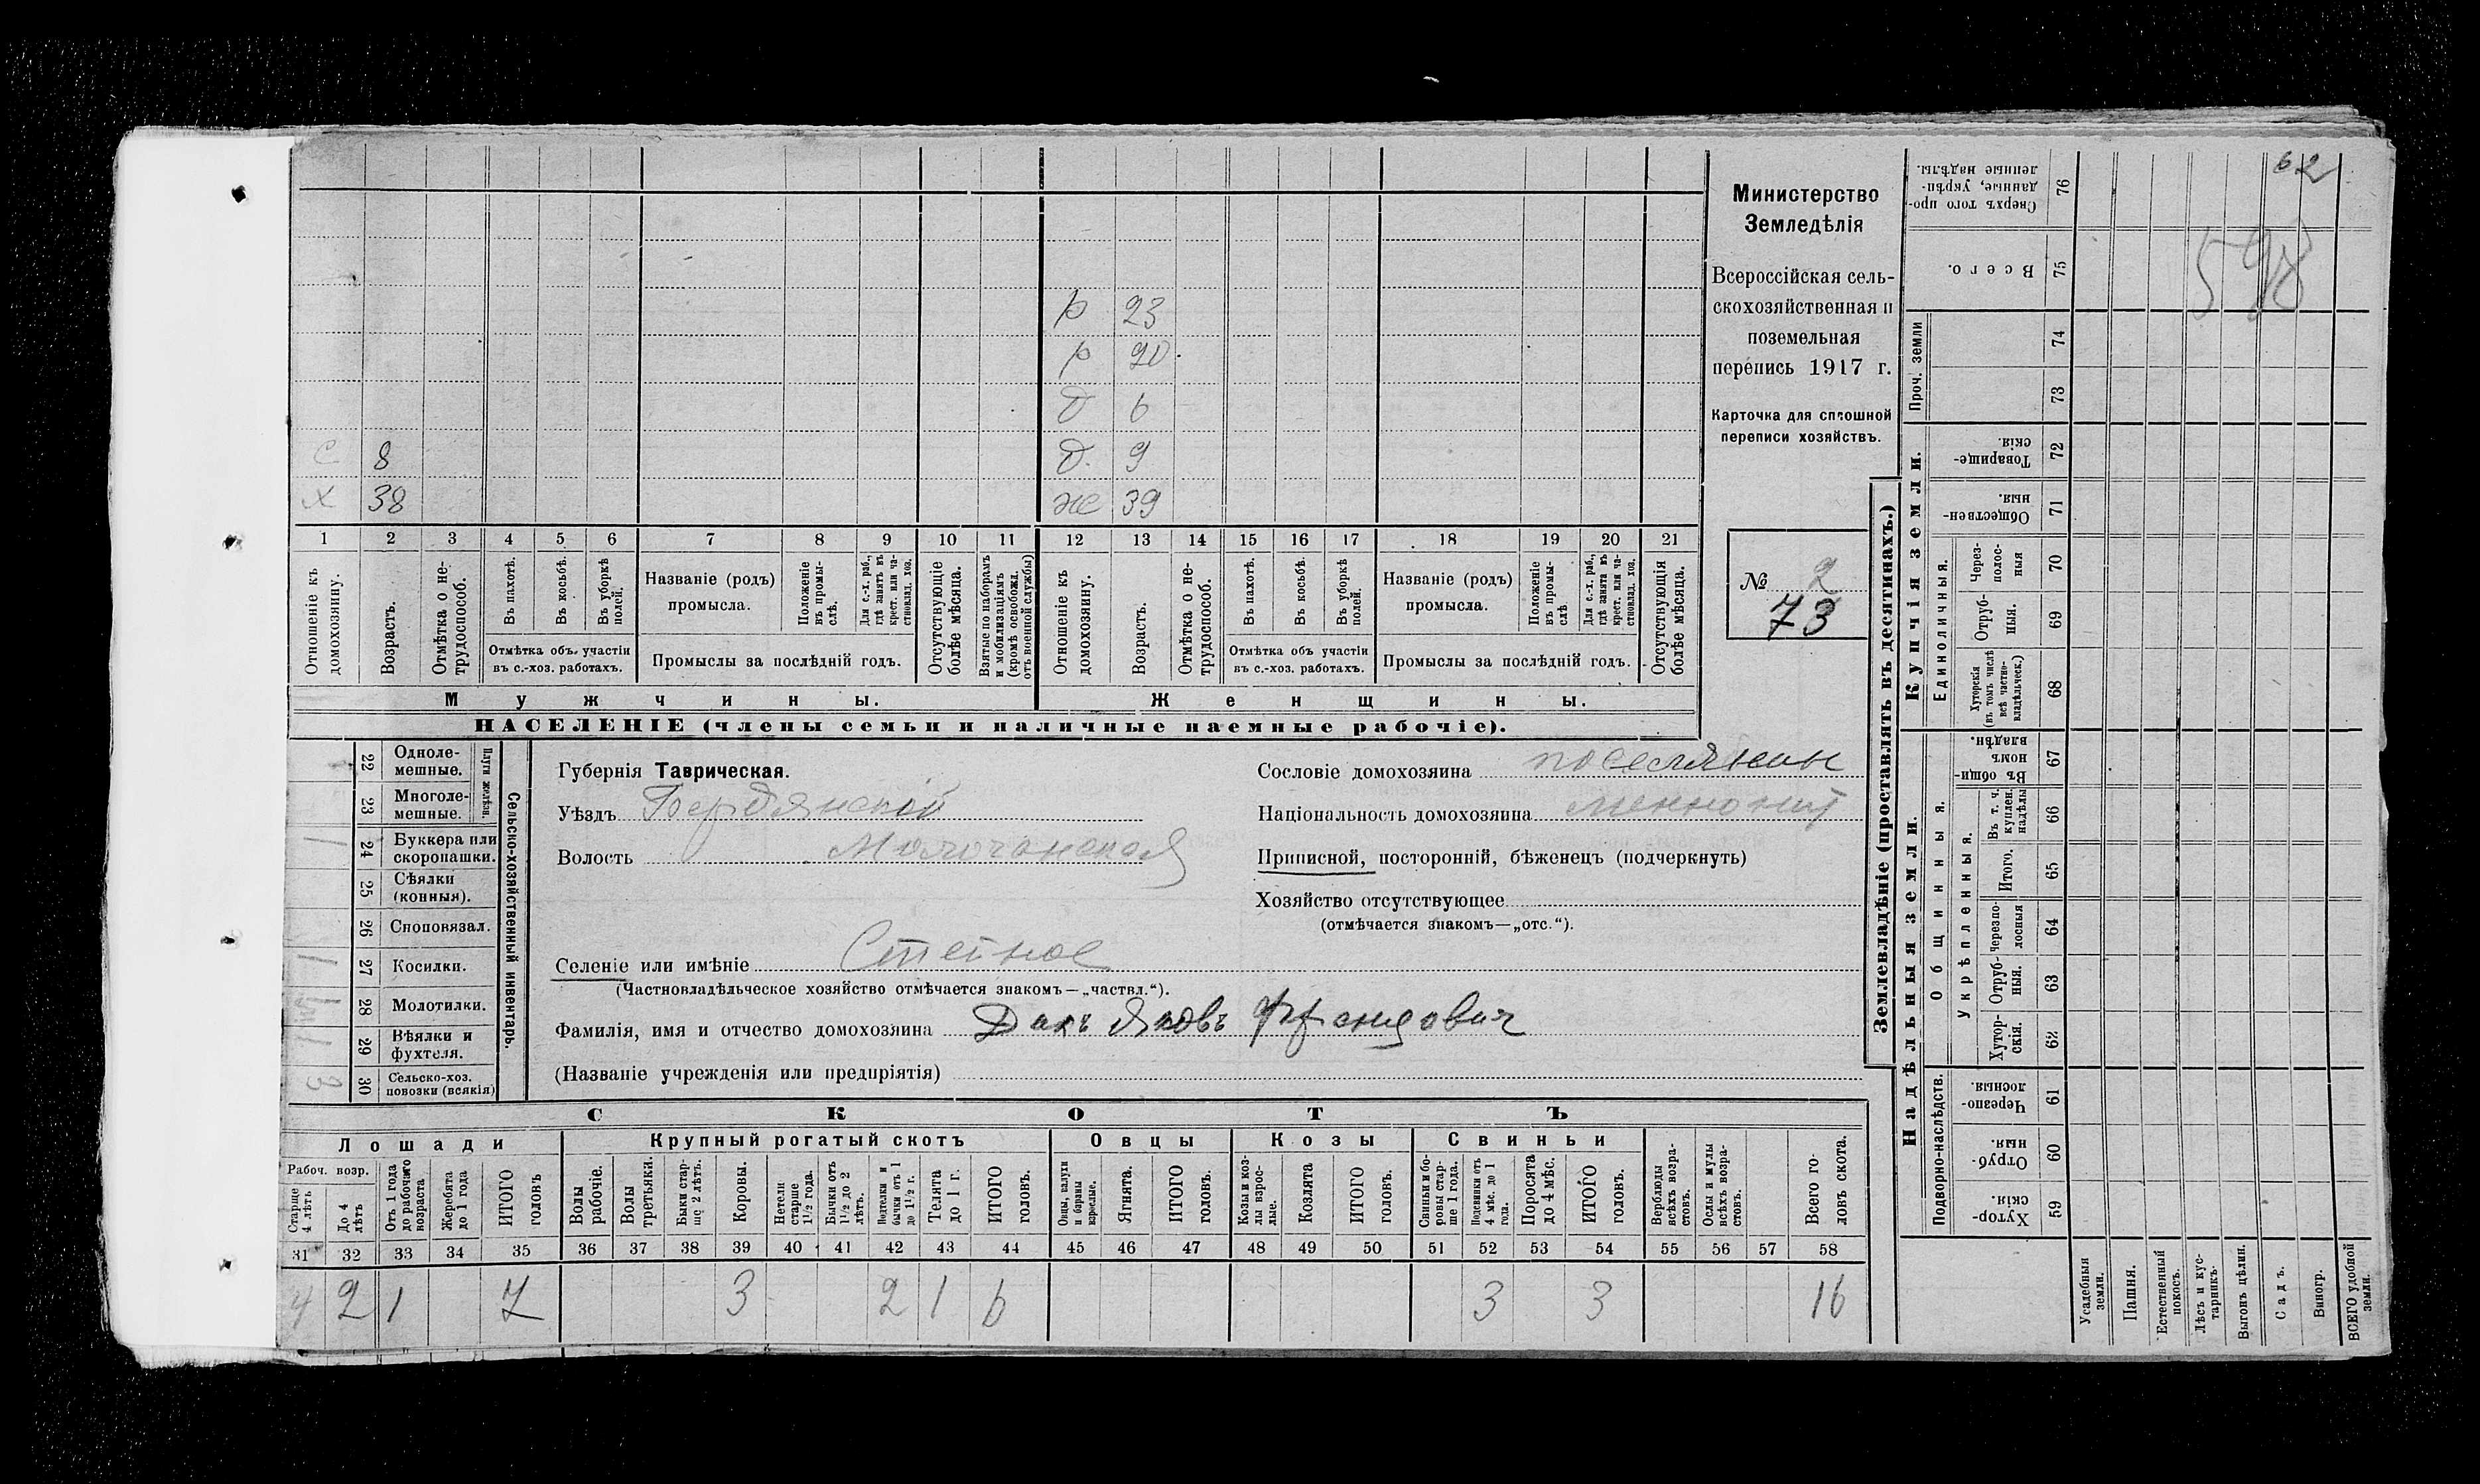 Министерство
Земледѣлія
Всероссійская сель-
скохозяйственная и
поземельная
перепись 1917 г.
Карточка для сплошной
переписи хозяйствъ.
№ 2
73
62
598
р 23
р 20
д 6
с 8 д. 9
х 38 же 39
1 2 3 4 5 6 7 8 9 10 11 12 13 14 15 16 17 18 19 20 21
Отношеніе къ домохозяину.
Возрастъ.
Отмѣтка о не-трудоспособ.
Въ пахотѣ.
Въ косьбѣ.
Въ уборкѣ полей.
Отмѣтка объ участіи въ с.-хоз. работахъ.
Названіе (родъ) промысла.
Положеніе въ промы-слѣ.
Для с.-х. раб., гдѣ занятъ въ крест. или ча-стновлад. хоз.
Промыслы за послѣдній годъ.
Отсутствующіе болѣе мѣсяца.
Взятые по наборамъ и мобилизаціямъ (кромѣ освобожд. отъ военной службы)
Отношеніе къ домохозяину.
Возрастъ.
Отмѣтка о не-трудоспособ.
Въ пахотѣ.
Въ косьбѣ.
Въ уборкѣ полей.
Отмѣтка объ участіи въ с.-хоз. работахъ.
Названіе (родъ) промысла.
Положеніе въ промы-слѣ
Для с.-х. раб., гдѣ занята въ крест. или ча-стновлад. хоз.
Промыслы за послѣдній годъ.
Отсутствующія болѣе мѣсяца.
Мужчины. Женщины.
НАСЕЛЕНІЕ (члены семьи и наличные наемные рабочіе).
Сельско-хозяйственный инвентарь.
Плуги желѣзн.
22 Одноле-мешные.
23 Многоле-мешные.
1 24 Буккера или скоропашки.
25 Сѣялки (конныя).
26 Сноповязал.
1 27 Косилки.
28 Молотилки.
1 29 Вѣялки и фухтеля.
3 30 Сельско-хоз. повозки (всякія)
Губернія Таврическая.
Уѣздъ Бердянскій
Волость Молочанская
Селеніе или имѣніе
(Частновладѣльческое хозяйство отмѣчается знакомъ—„частвл.“).
Фамилія, имя и отчество домохозяина Дикъ Яковъ
(Названіе учрежденія или предпріятія)
Сословіе домохозяина поселянинъ
Національность домохозяина меннонит
Приписной, посторонній, бѣженецъ (подчеркнуть)
Хозяйство отсутствующее
(отмѣчается знакомъ—„отс.“).
СКОТЪ
Лошади Крупный рогатый скотъ Овцы Козы Свиньи
Рабоч. возр.
Старше 4 лѣтъ
До 4 лѣтъ
Отъ 1 года до рабочаго возраста
Жеребята до 1 года
ИТОГО головъ
Волы рабочіе.
Волы третьяки.
Быки стар-ше 2 лѣтъ.
Коровы.
Нетели старше 1½ года.
Бычки отъ 1½ до 2 лѣтъ.
Подтелки и бычки отъ 1 до 1½ г.
Телята до 1 г.
ИТОГО головъ.
Овцы, валухи и бараны взрослые.
Ягнята.
ИТОГО головъ.
Козы и коз-лы взрос-лые.
Козлята
ИТОГО головъ.
Свиньи и бо-ровы стар-ше 1 года.
Подсвинки отъ 4 мѣс. до 1 года.
Поросята до 4 мѣс.
ИТОГО головъ.
Верблюды всѣхъ возра-стовъ.
Ослы и мулы всѣхъ возра-стовъ.
Всего го-ловъ скота.
31 32 33 34 35 36 37 38 39 40 41 42 43 44 45 46 47 48 49 50 51 52 53 54 55 56 57 58
4 2 1 7 3 2 1 6 3 3 16
Землевладѣніе (проставлять въ десятинахъ.)
Купчія земли.
Надѣльныя земли.
Сверхъ того про-данные, укрѣп-ленные надѣлы. 76
Всего. 75
Проч. земли 74 73
Товарище-скія. 72
Обществен-ныя. 71
Единоличныя.
Через-полос-ныя 70
Отруб-ныя. 69
Хуторскія (въ томъ числѣ всѣ частно-владѣльческ.) 68
Общинныя.
Въ общин-номъ владѣн. 67
Укрѣпленныя.
Въ т. ч. куплен. надѣлы 66
Итого. 65
Черезпо-лосныя 64
Отруб-ныя. 63
Хутор-скія. 62
Подворно-наслѣдств.
Черезпо-лосныя. 61
Отруб-ныя. 60
Хутор-скія. 59
Усадебныя земли.
Пашня.
Естественный покосъ.
Лѣсъ и кус-тарникъ.
Выгонъ цѣлин.
Садъ.
Виногр.
ВСЕГО удобной земли.